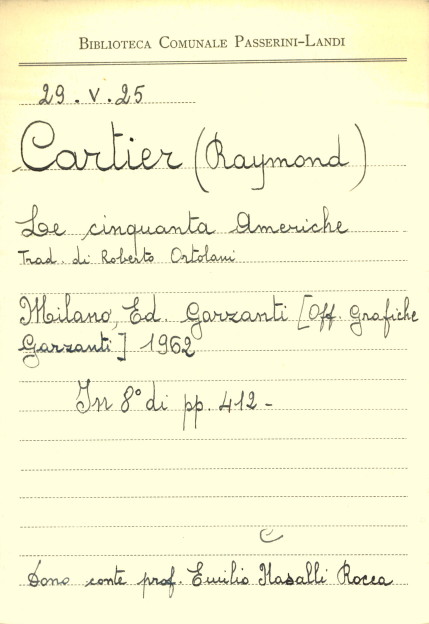 BIBLIOTECA COMUNALE PASSERINI-LANDI
29.V.25
Cartier (Raymond)
Le cinquanta Americhe
Trad. di Roberto Ortolani
Milano, Ed. Garzanti [Off. Grafiche
Garzanti] 1962
In 8° di pp. 412 -
C
Dono conte prof. Emilio Nasalli Rocca